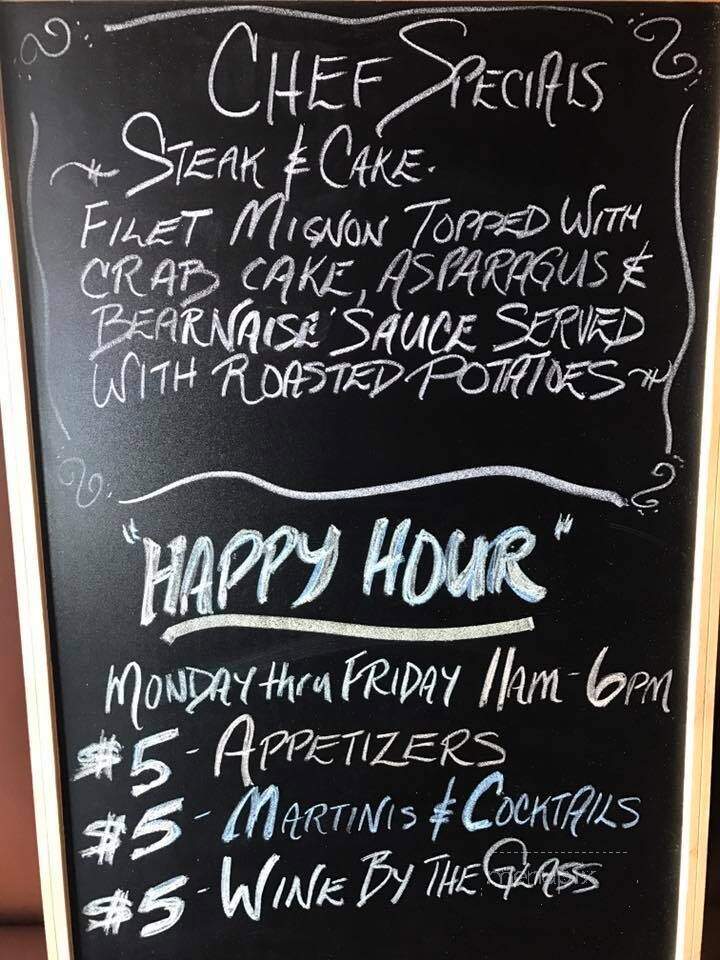 CHEF SPECIALS
STEAK & CAKE.
FILET MIGNON TOPPED WITH
CRAB CAKE, ASPARAGUS &
BEARNAISE' SAUCE SERVED
WITH ROASTED POTATOES
"HAPPY HOUR"
MONDAY thru FRIDAY 11AM-6PM
$5- APPETIZERS
$5- MARTINIS & COCKTAILS
$5- WINE BY THE GLASS